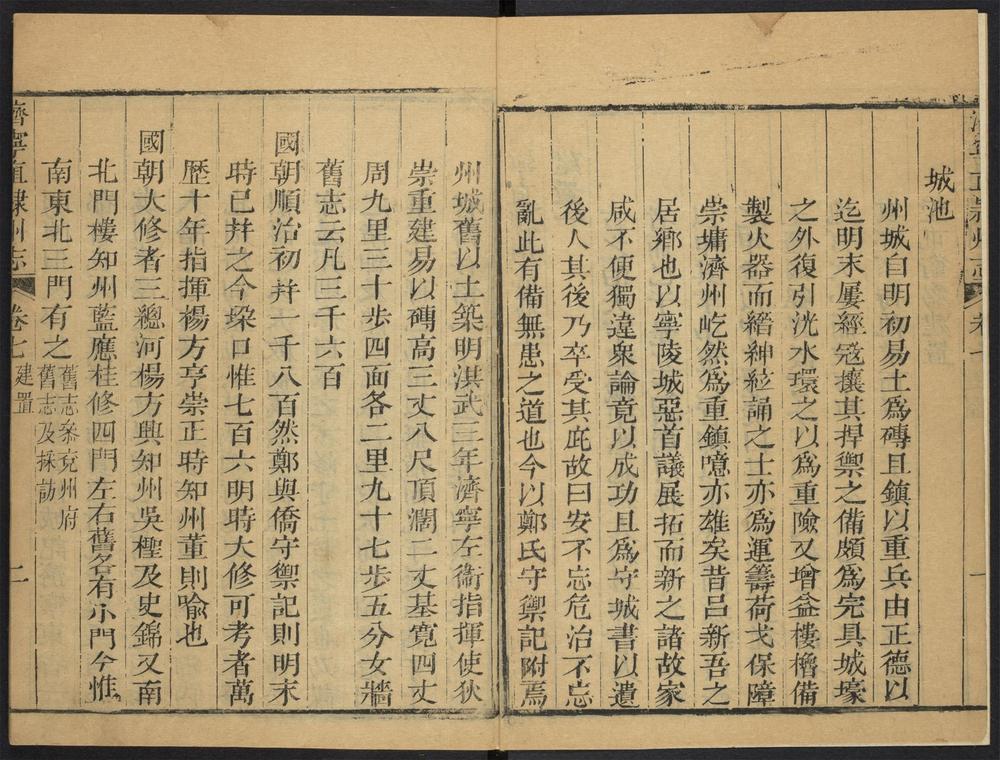 城池
州城自明初易土為磚且鎮以重兵由正德以
迄明末屢經寇攘其捍禦之備頗為完具城壕
之外復引洸水環之以為重險又增益樓櫓備
製火器而縉紳絃誦之士亦為運籌荷戈保障
崇墉濟州屹然為重鎮噫亦雄矣昔呂新吾之
居鄉也以寧陵城惡首議展拓而新之諸故家
咸不便獨違衆論竟以成功且為守城書以遺
後人其後乃卒受其庇故曰安不忘危治不忘
亂此有備無患之道也今以鄭氏守禦記附焉
州城舊以土築明洪武三年濟寧左衞指揮使狄
崇重建易以磚高三丈八尺頂濶二丈基寬四丈
周九里三十步四面各二里九十七步五分女牆
舊志云凡三千六百
國朝順治初幷一千八百然鄭與僑守禦記則明末
時已幷之今垜口惟七百六明時大修可考者萬
歴十年指揮楊方亨崇正時知州董則喻也
國朝大修者三總河楊方興知州吳檉及史錦又南
北門樓知州藍應桂修四門左右舊各有小門今惟
南東北三門有之舊志參兗州府
舊志及採訪
濟寧直隸州志
卷七
建置
二